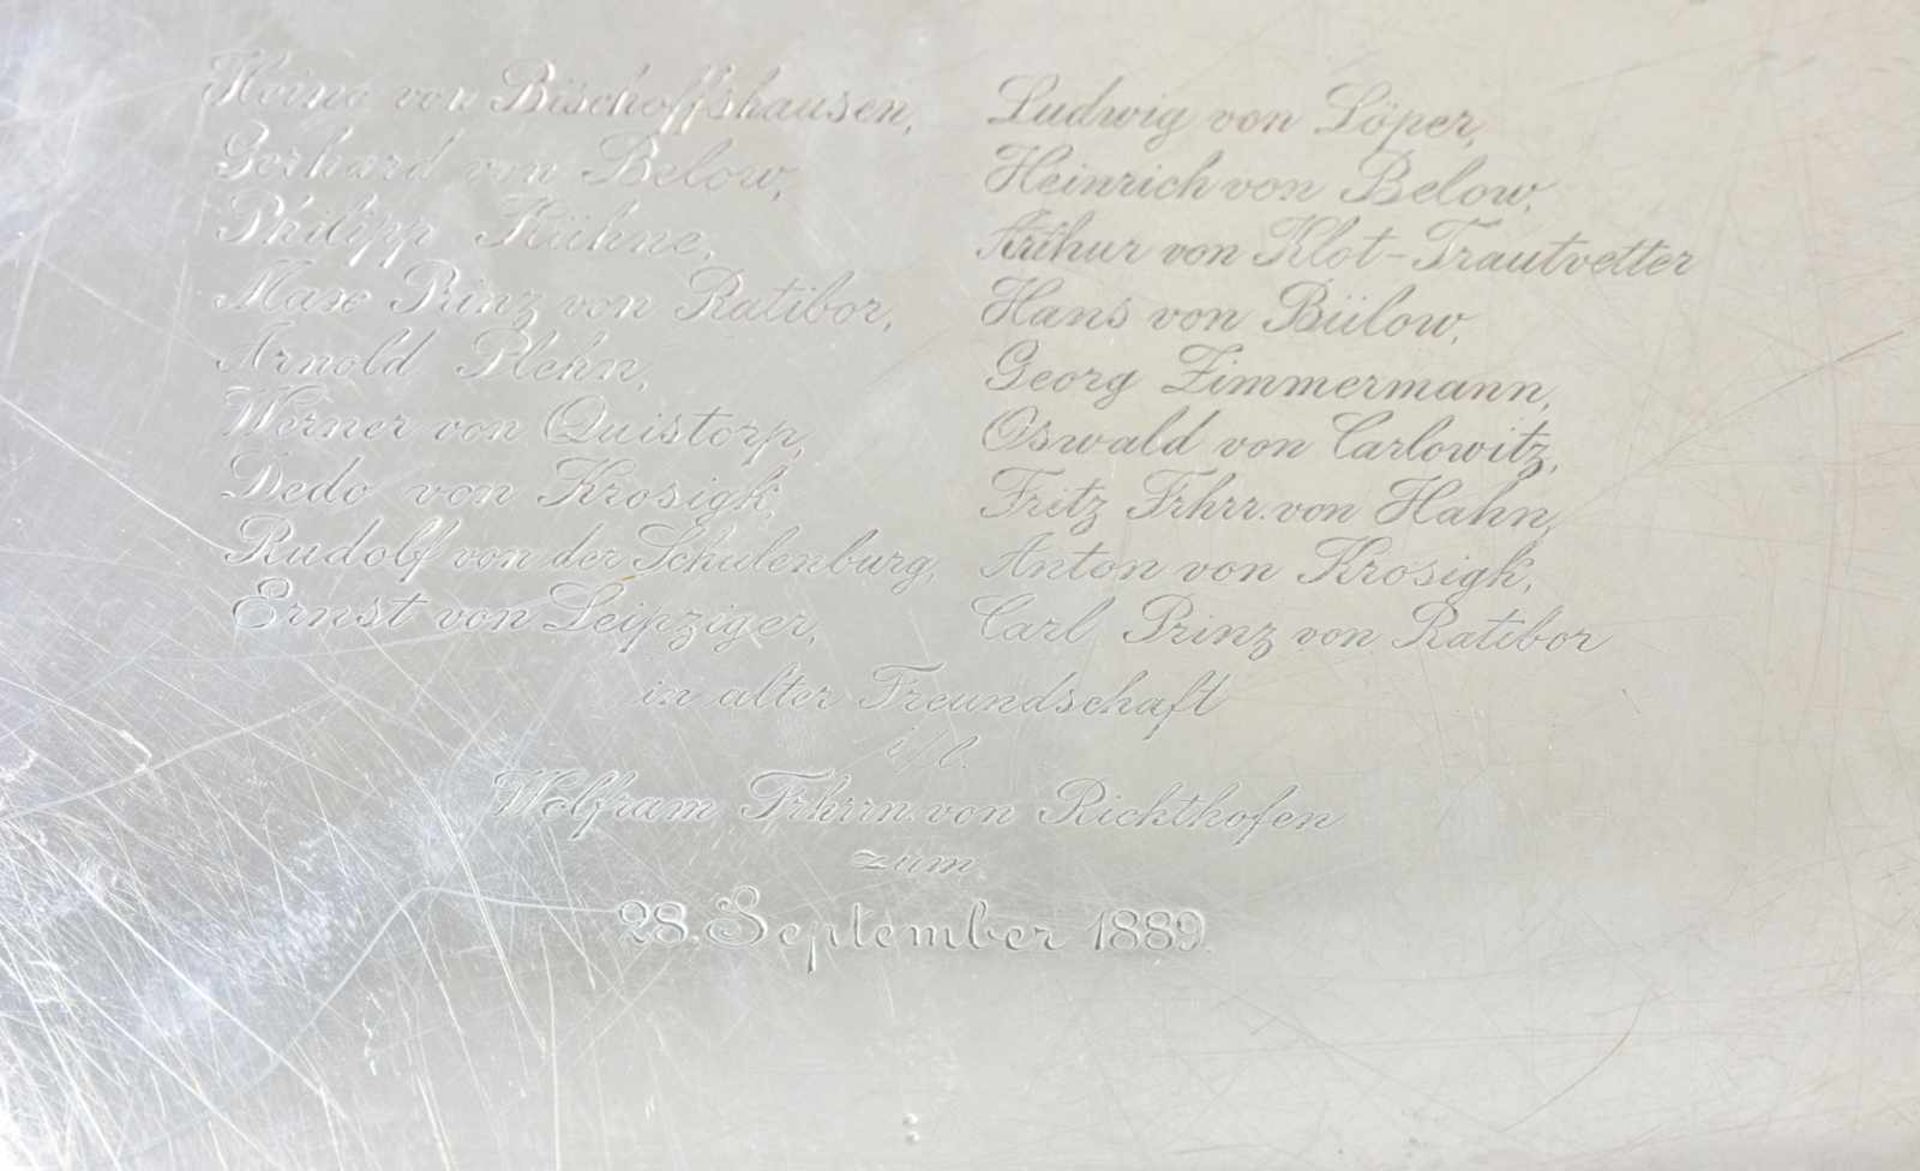 Heino von Bischoffshausen,
Gerhard von Below,
Philipp Kühne,
Max Prinz von Ratibor,
Arnold Plehn,
Werner von Quistorp,
Dedo von Krosigk,
Rudolf von der Schulenburg,
Ernst von Leipziger,
Ludwig von Löper,
Heinrich von Below,
Arthur von Klot-Trautvetter
Hans von Bülow,
Georg Zimmermann,
Oswald von Carlowitz,
Fritz Frhrr. von Hahn,
Anton von Krosigk,
Carl Prinz von Ratibor
in alter Freundschaft
Wolfram Frhrrn. von Richthofen
zum
28. September 1889.